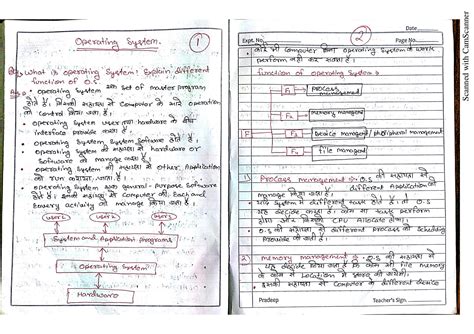 Operating System.
1
Que What is operating System? Explain different
function of O.S
Ans • operating System एक set of master program
होते है, जिनकी सहायता से Computer के सारे operation
को control किया जाता है।
• operating System user तथा hardware के बीच
interface provide करता है।
• operating System System software होते है।
• operating System की सहायता से hardware or
Software को manage करता है।
• operating System की सहायता से other Application
को run कराया जाता है।
• operating System एक general-purpose Software
होते है। इसकी सहायता से Computer की Each and
Every activity को manage किया जाता है।
user 1 user 2 user 3
System and Application programs
Operating System
Hardware
Date
Expt. No. 2 Page No.
• कोई भी Computer बिना operating System के work
perform नहीं कर सकता है।
function of operating System :-
F1 process management
F2 memory management
F3 Device management/ peripheral management
F4 file management
1) Process management :- O.S की सहायता से
manage किया जाता है। different Application को
System में different task होते है। तो O.S
यह decide करता है। कौन सा task perform
होगा और किसको CPU Allocate होगा।
• O.S की सहायता से different process को Scheduling
Provide की जाती है।
2) memory management :- O.S की सहायता से
यह decide किया जाता है कि कौन सी file memory
के कौन से Location में store की जायेगी।
इसकी सहायता से Computer के different device
Pradeep Teacher's Sign.
Scanned with CamScanner